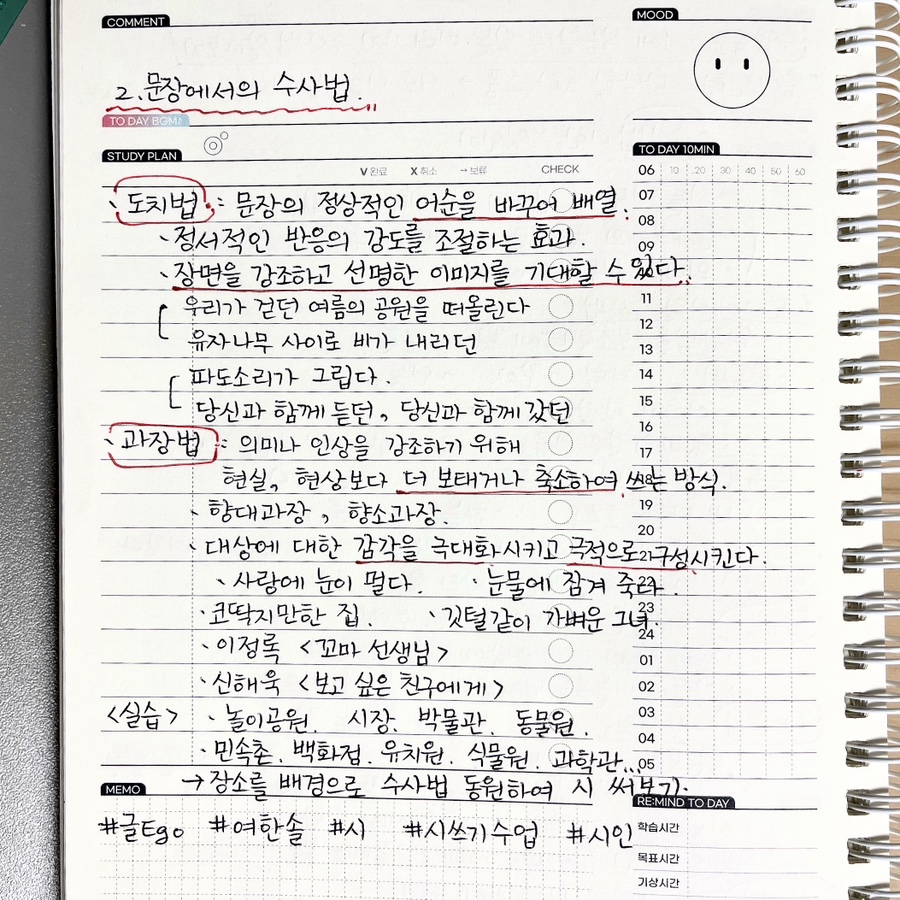 COMMENT
MOOD
2. 문장에서의 수사법.
TO DAY BGM♪
STUDY PLAN
V 완료 X 취소 → 보류 CHECK
TO DAY 10MIN
06 10 20 30 40 50 60
07
08
09
11
12
13
14
15
16
17
18
19
20
21
22
23
24
01
02
03
04
05
· 도치법 : 문장의 정상적인 어순을 바꾸어 배열.
· 정서적인 반응의 강도를 조절하는 효과.
· 장면을 강조하고 선명한 이미지를 기대할 수 있다.
우리가 걷던 여름의 공원을 떠올린다
유자나무 사이로 비가 내리던
파도소리가 그립다.
당신과 함께 듣던, 당신과 함께 갔던
· 과장법 : 의미나 인상을 강조하기 위해
현실, 현상보다 더 보태거나 축소하여 쓰는 방식.
· 향대과장, 향소과장.
· 대상에 대한 감각을 극대화시키고 극적으로 구성시킨다.
· 사랑에 눈이 멀다. · 눈물에 잠겨 죽다.
· 코딱지만한 집. · 깃털같이 가벼운 그녀.
· 이정록 <꼬마 선생님>
· 신해욱 <보고 싶은 친구에게>
<실습> · 놀이공원. 시장. 박물관. 동물원.
· 민속촌. 백화점. 유치원. 식물원. 과학관...
→ 장소를 배경으로 수사법 동원하여 시 써보기.
MEMO
#글Ego #여한솔 #시 #시쓰기수업 #시인
RE:MIND TO DAY
학습시간
목표시간
기상시간